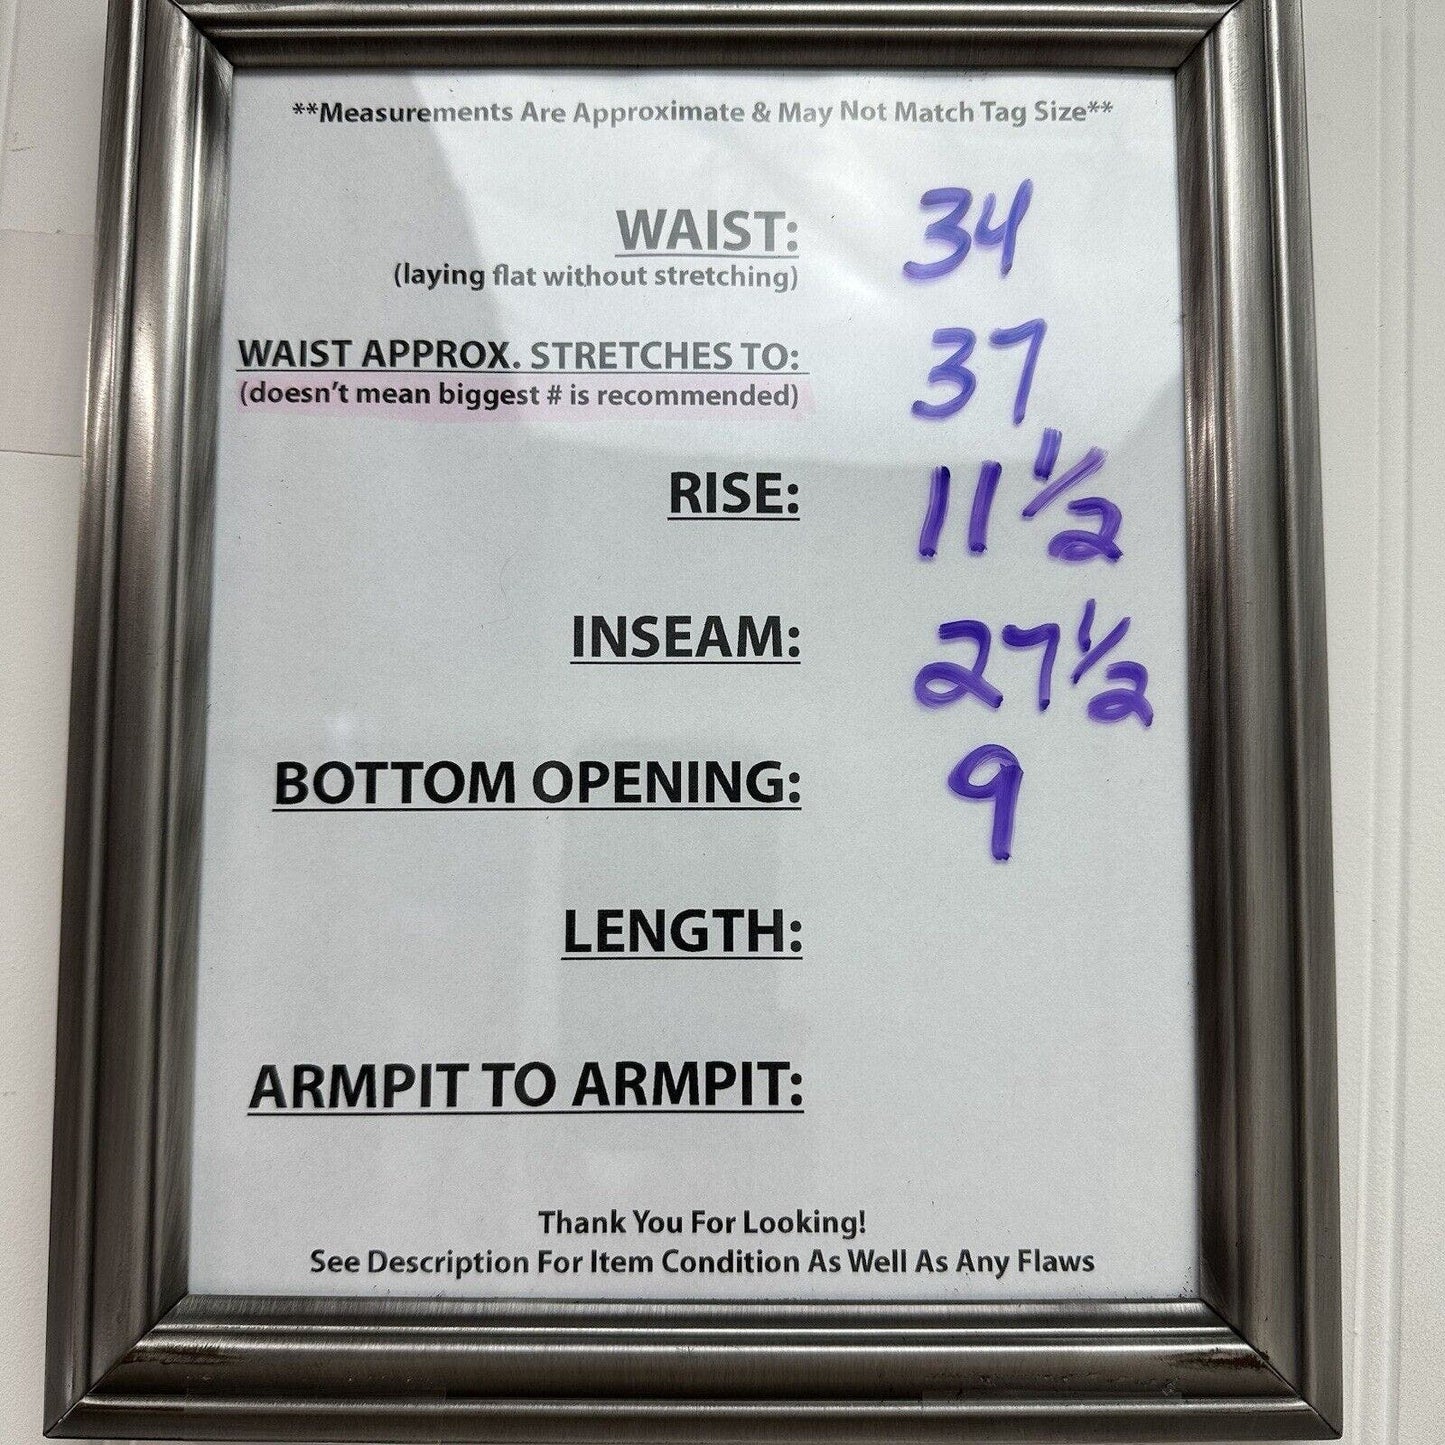 **Measurements Are Approximate & May Not Match Tag Size**
WAIST: 34
(laying flat without stretching)
WAIST APPROX. STRETCHES TO: 37
(doesn't mean biggest # is recommended)
RISE: 11 1/2
INSEAM: 27 1/2
BOTTOM OPENING: 9
LENGTH:
ARMPIT TO ARMPIT:
Thank You For Looking!
See Description For Item Condition As Well As Any Flaws